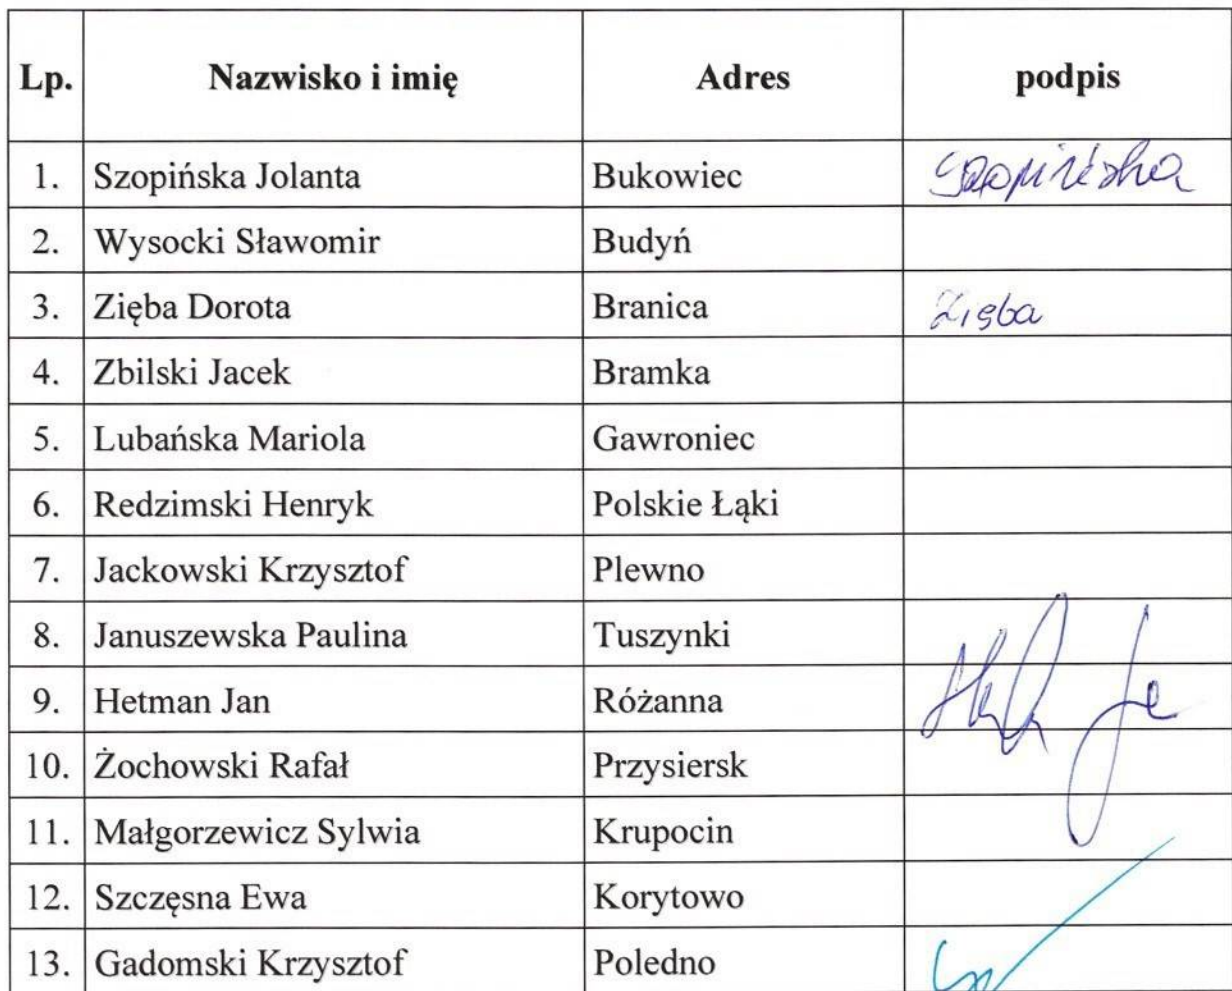 Lp. Nazwisko i imię Adres podpis
1. Szopińska Jolanta Bukowiec Szopińska
2. Wysocki Sławomir Budyń
3. Zięba Dorota Branica Zięba
4. Zbilski Jacek Bramka
5. Lubańska Mariola Gawroniec
6. Redzimski Henryk Polskie Łąki
7. Jackowski Krzysztof Plewno
8. Januszewska Paulina Tuszynki
9. Hetman Jan Różanna
10. Żochowski Rafał Przysiersk
11. Małgorzewicz Sylwia Krupocin
12. Szczęsna Ewa Korytowo
13. Gadomski Krzysztof Poledno